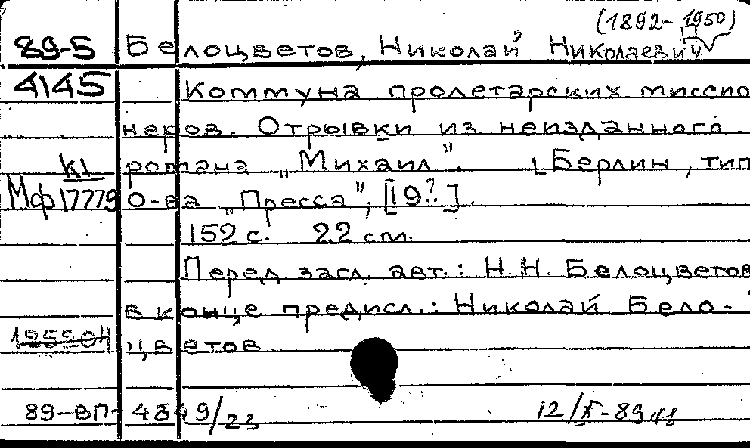 (1892-1950)
89-5 Белоцветов, Николай Николаевич
4145 Коммуна пролетарских миссио
неров. Отрывки из неизданного
романа „Михаил". [Берлин, тип
Мф 17779 О-ва „Пресса", [19?].
152 с. 22 см.
Перед загл. авт.: Н.Н. Белоцветов
в конце предисл.: Николай Бело-
цветов
89-ВП-4849/23 12/X-89